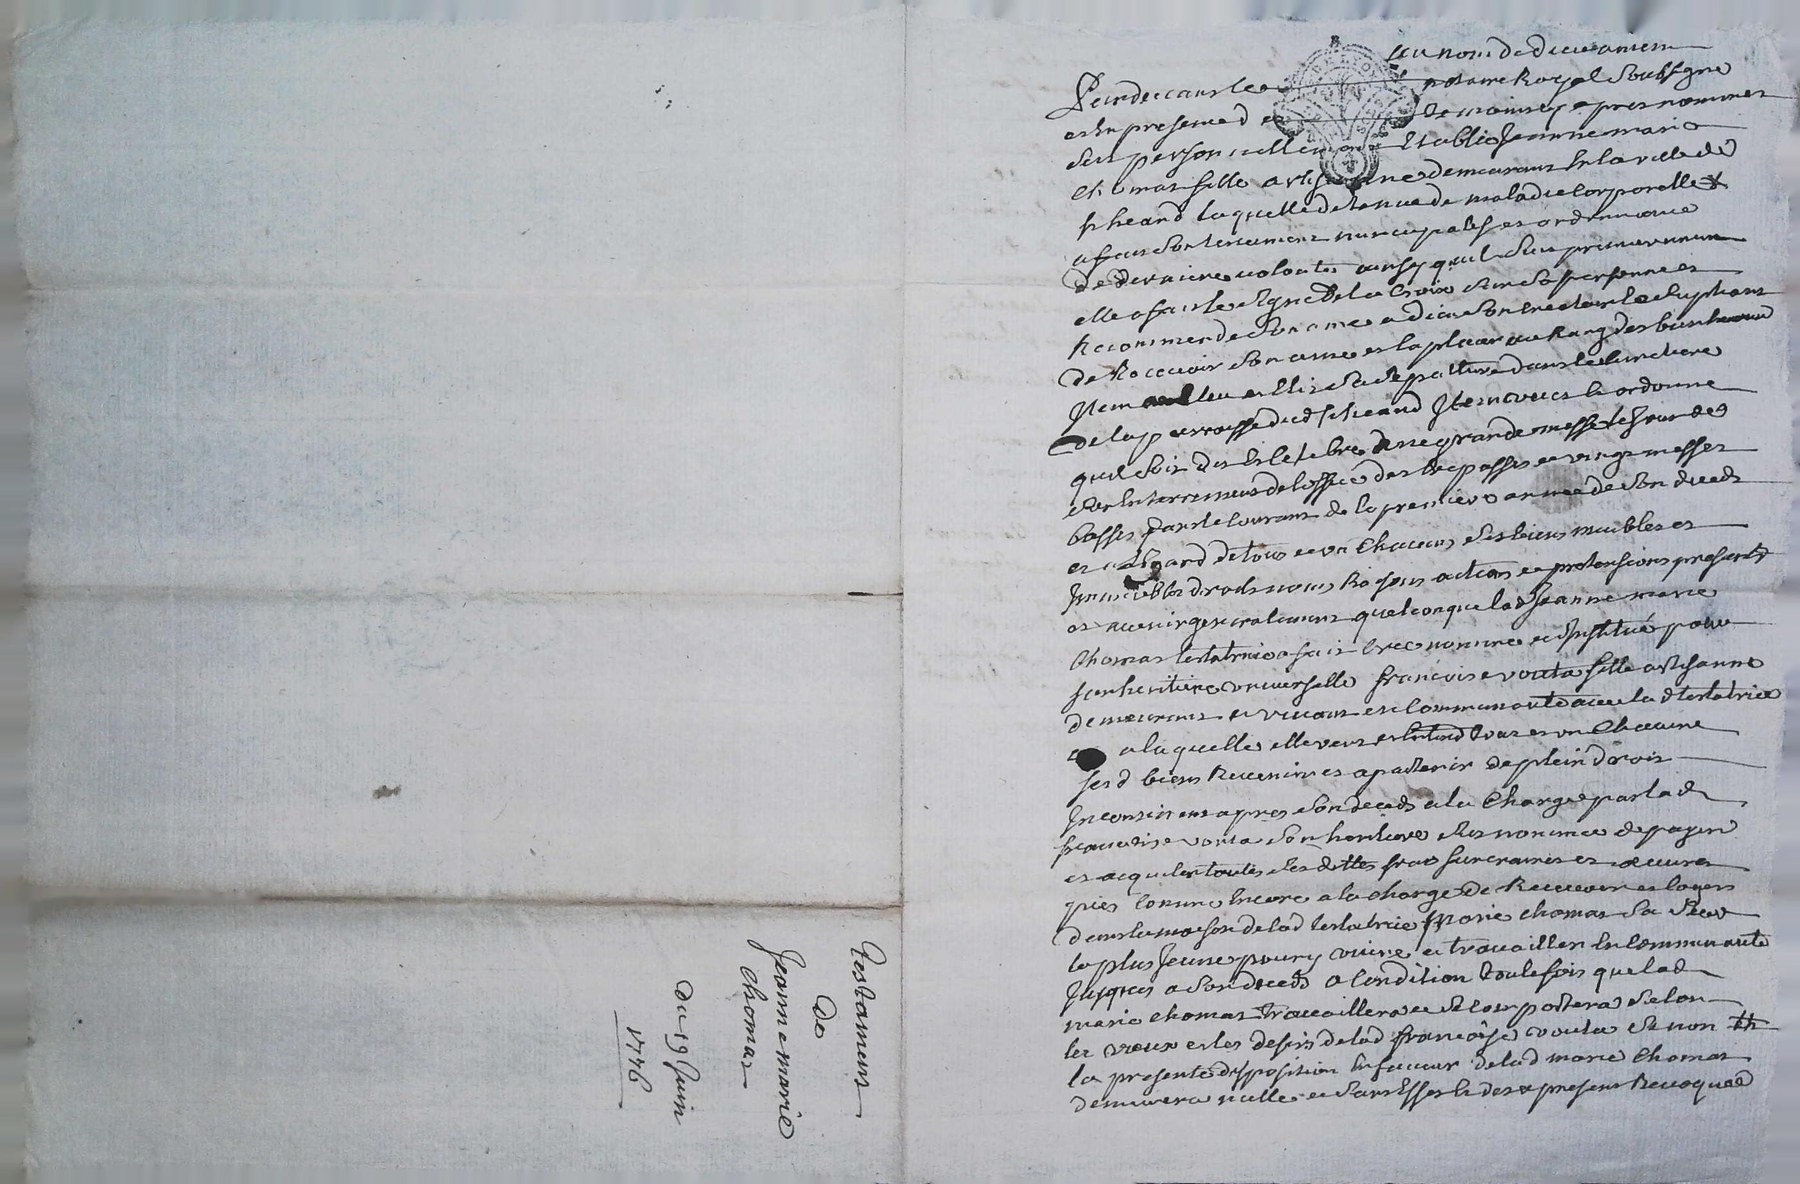 au nom de dieu amen
Pardevant le notaire Royal Soussigné
et en presence d temoins cy apres nommes
fut personnellem etablie Jeanne marie
chomas fille artisanne demeurant en la ville de
st heand laquelle detenue de maladie corporelle
a fait son testament nuncupatif et ordonnance
de derniere volonte ainsy quil suit premierement
elle a fait le signe de la Croix sur sa personne et
Recommende son ame a dieu son createur le supliant
de Recevoir son ame et la placer au Rang des bienheureux
Item a elleu et elit sa sepulture dans le cimetiere
de la parroisse dud st heand Item veut et ordonne
quil soit dit et celebre une grande messe le Jour de
son enterrement de loffice des trepasses et vingt messes
basses dans le courant de la premiere annee de son deceds
et a legard de tous et un chacuns ses biens meubles et
Immeubles droits noms Raisons actions et pretensions presents
et avenir generalement quelconque lad Jeanne marie
chomas testatrice a fait cree nomme et institué pour
son heritiere universelle francoise vouta fille artisanne
demeurant et vivant en communauté avec lad testatrice
a laquelle elle veut et entend tous et un chacune
sesd biens Revenir et apartenir de plein droit
Incontinent apres son deceds a la charge par lad
francoise vouta son heritiere de payer
et acquiter toutes ses dettes frais funeraires et oeuvres
pies comme encore a la charge de Recevoir et loger
dans la maison de lad testatrice marie chomas sa sœur
la plus Jeune pour y vivre et travailler en communauté
Jusques a son deceds a condition toutefois que lad
marie chomas travaillera et se comportera selon
les vœux et les desirs de lad francoise vouta si non
la presente disposition en faveur de lad marie chomas
demeurera nulle et sans Effet et des a present Revoquée
testament
de
Jeanne marie
chomas
du 19 Juin
1776